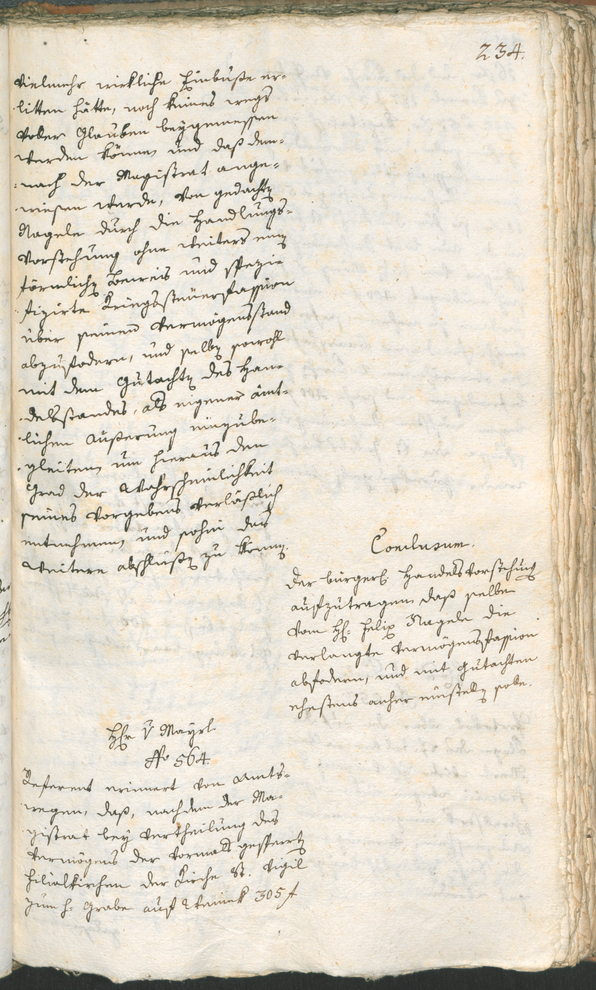 234.
vielmehr wirkliche Einbuße er-
litten hätte, noch keines wegs
voller Glauben beygemessen
werden könne, und daß dem-
nach der Magistrat ange-
wiesen werde, von gedachten
Nagele durch die Handlungs-
Vorstehung ohne weiters einen
förmlichen Beweis und spezi-
fizirte Kriegssteuerfassion
über seinen Vermögensstand
abzufodern, und selbe sowohl
mit dem Gutachten des Han-
delsstandes, als eigener ämt-
lichen Äußerung einzube-
gleiten, um hieraus den
Grad der Wahrscheinlichkeit
seines Vorgebens verläßlich
entnehmen, und sohin das
weitere abschlüßen zu können.
Conclusum.
Der bürgerl. Handelsvorstehung
aufzutragen, daß selbe
vom H. Felix Nagele die
verlangte Vermögensfassion
abfodern, und mit Gutachten
ehestens anher einstellen solle.
Hr v Mayrl
No 564
Referent erinnert von Amts-
wegen, daß, nachdem der Ma-
gistrat bey Vertheilung des
Vermögens der vormals gesperrten
Filialkirchen der Kirche St. Vigil
zum h. Grabe auf 305 f